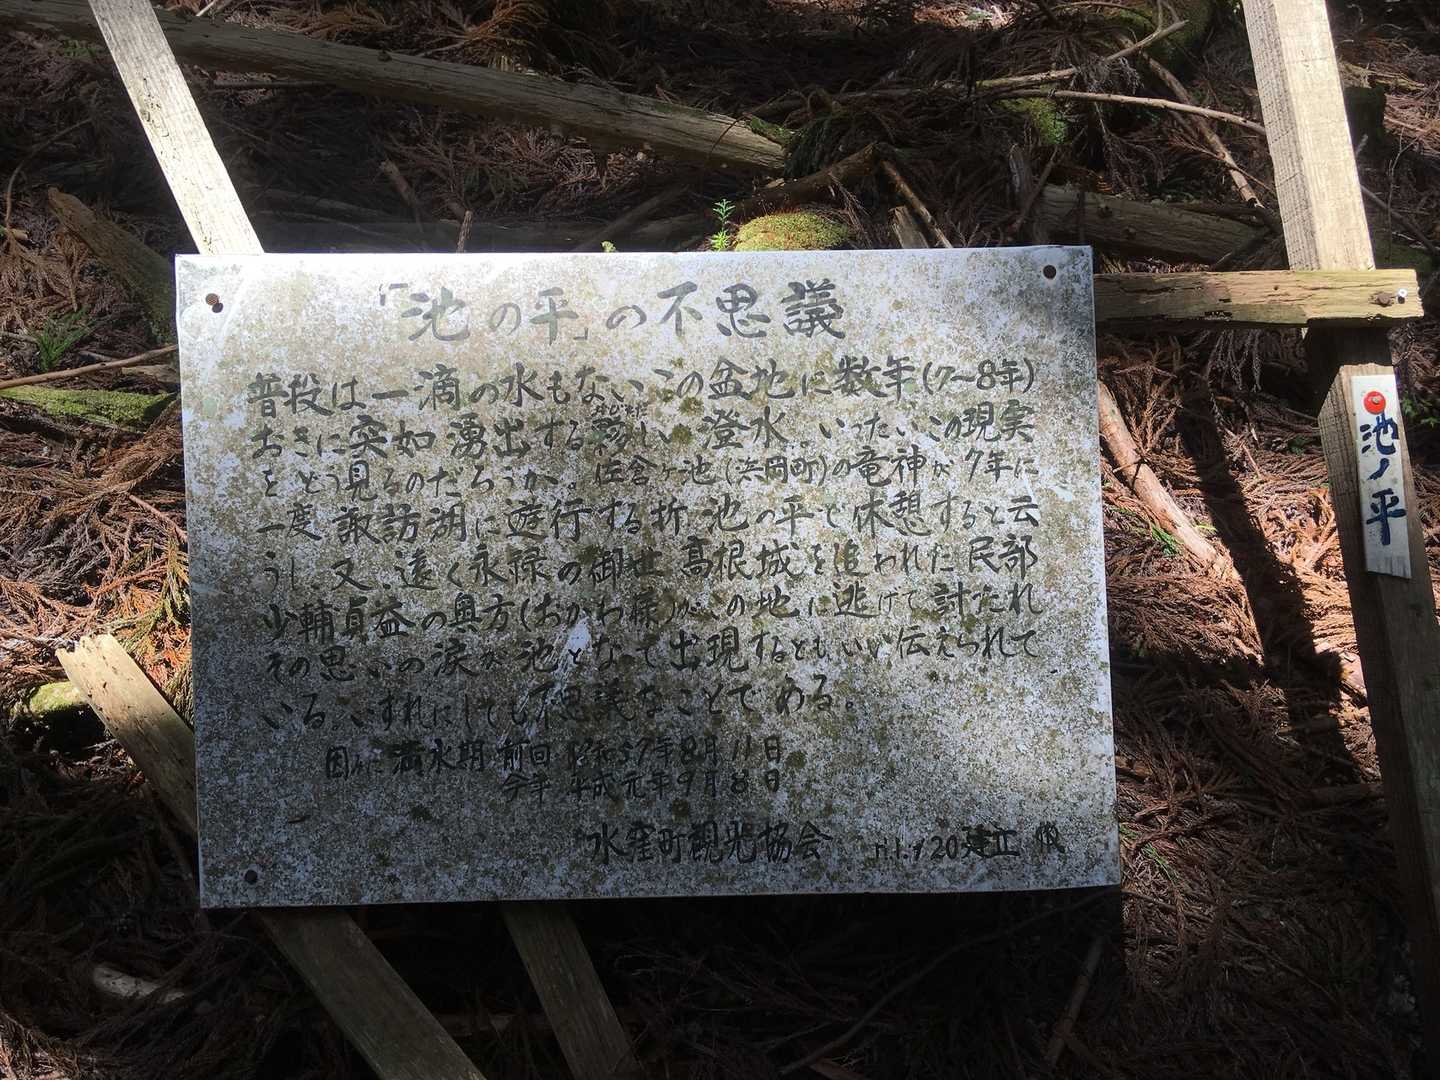 「池の平」の不思議
普段は一滴の水もない、この盆地に数年(7〜8年)
おきに突如湧出する夥しい澄水。いったいこの現実
をどう見るのだろうか。佐倉ヶ池(浜岡町)の竜神が7年に
一度諏訪湖に遊行する折池の平で休憩すると云
うし、又、遠く永禄の御世高根城を追われた民部
少輔貞益の奥方(おかわ様)がこの地に逃げて討たれ
その思いの涙が池となって出現するともいい伝えられて
いる。いずれにしても不思議なことである。
因みに満水期 前回 昭和57年8月11日
今年 平成元年9月8日
水窪町観光協会 建立
池ノ平